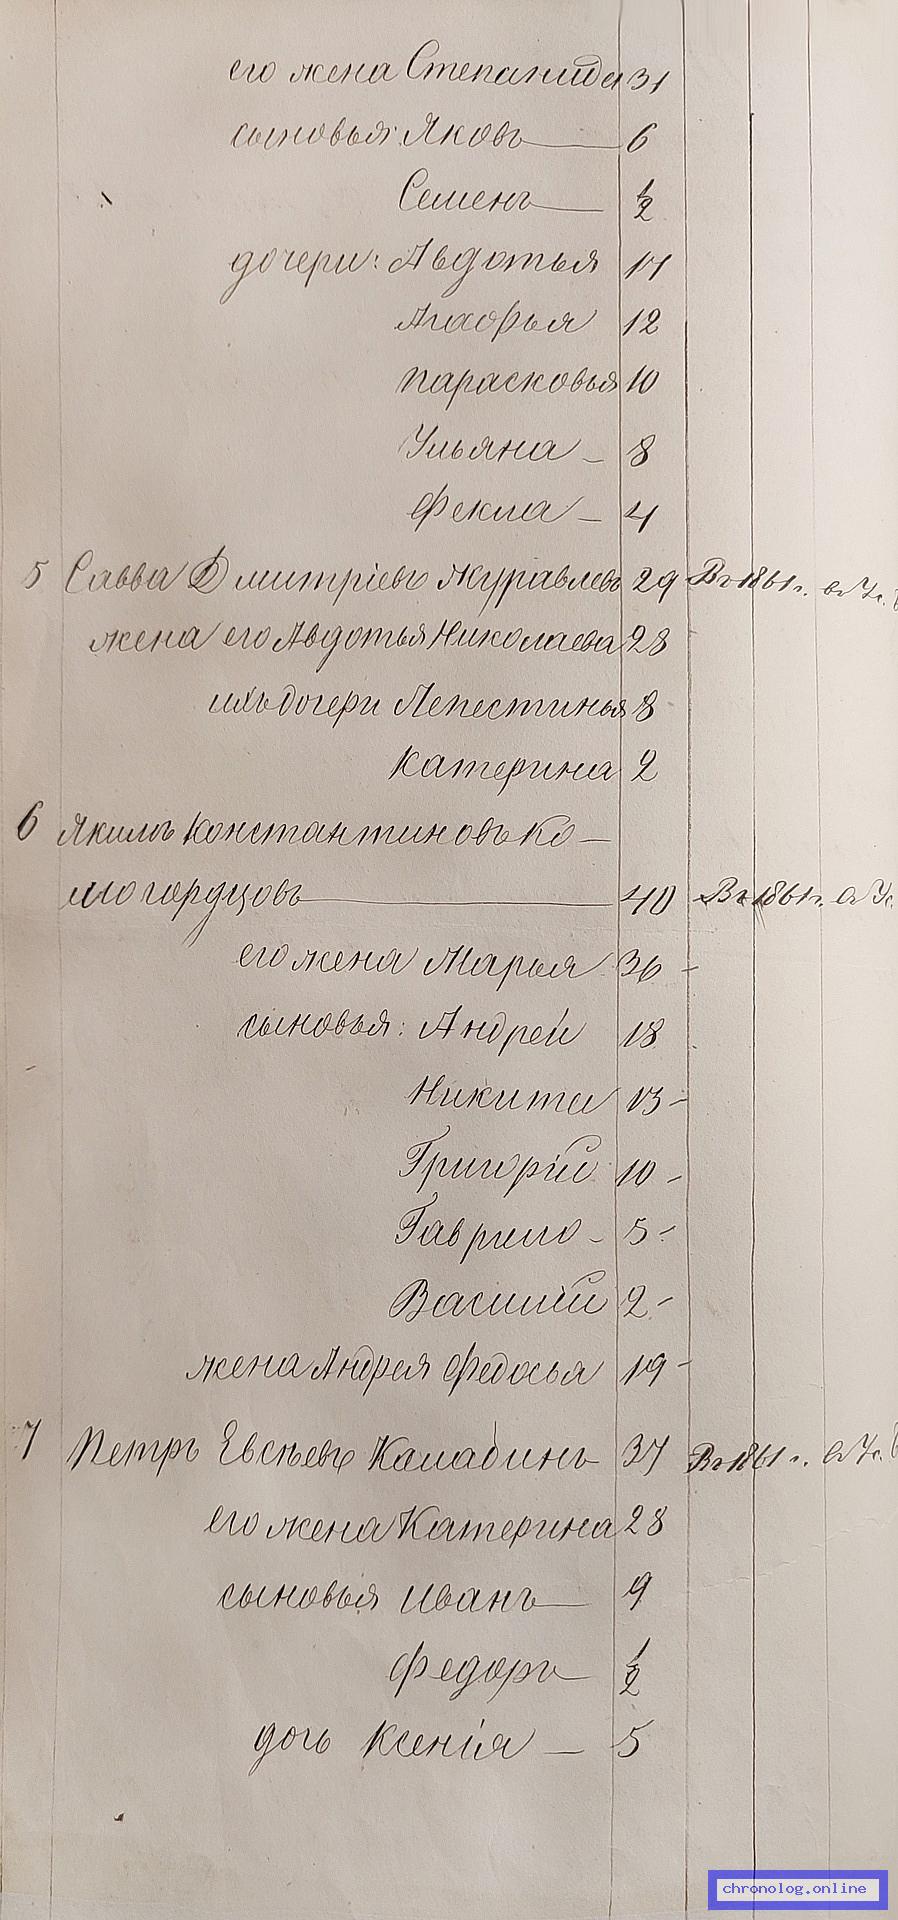 его жена Степанида 31
сыновья: Яковъ 6
Семенъ 1/2
дочери: Авдотья 14
Агаофья 12
Парасковья 10
Ульяна – 8
Фекла – 4
5 Савва Дмитріевъ Журавлевъ 29 Въ 1861 г. въ Ус.
жена его Авдотья Николаева 28
ихъ дочери Пелестинья 8
Катерина 2
6 Якимъ Константиновъ Ко–
логордцовъ 40 Въ 1861 г. въ Ус.
его жена Марья 36 –
сыновья: Андрей 18
Никита 13 –
Григорій 10 –
Гаврило – 5 –
Василій 2 –
жена Андрея Федосья 19 –
7 Петръ Евсѣевъ Калабинъ 37 Въ 1861 г. въ Ус.
его жена Катерина 28
сыновья Иванъ 9
Федоръ 1/2
дочь Ксенія – 5
chronolog.online